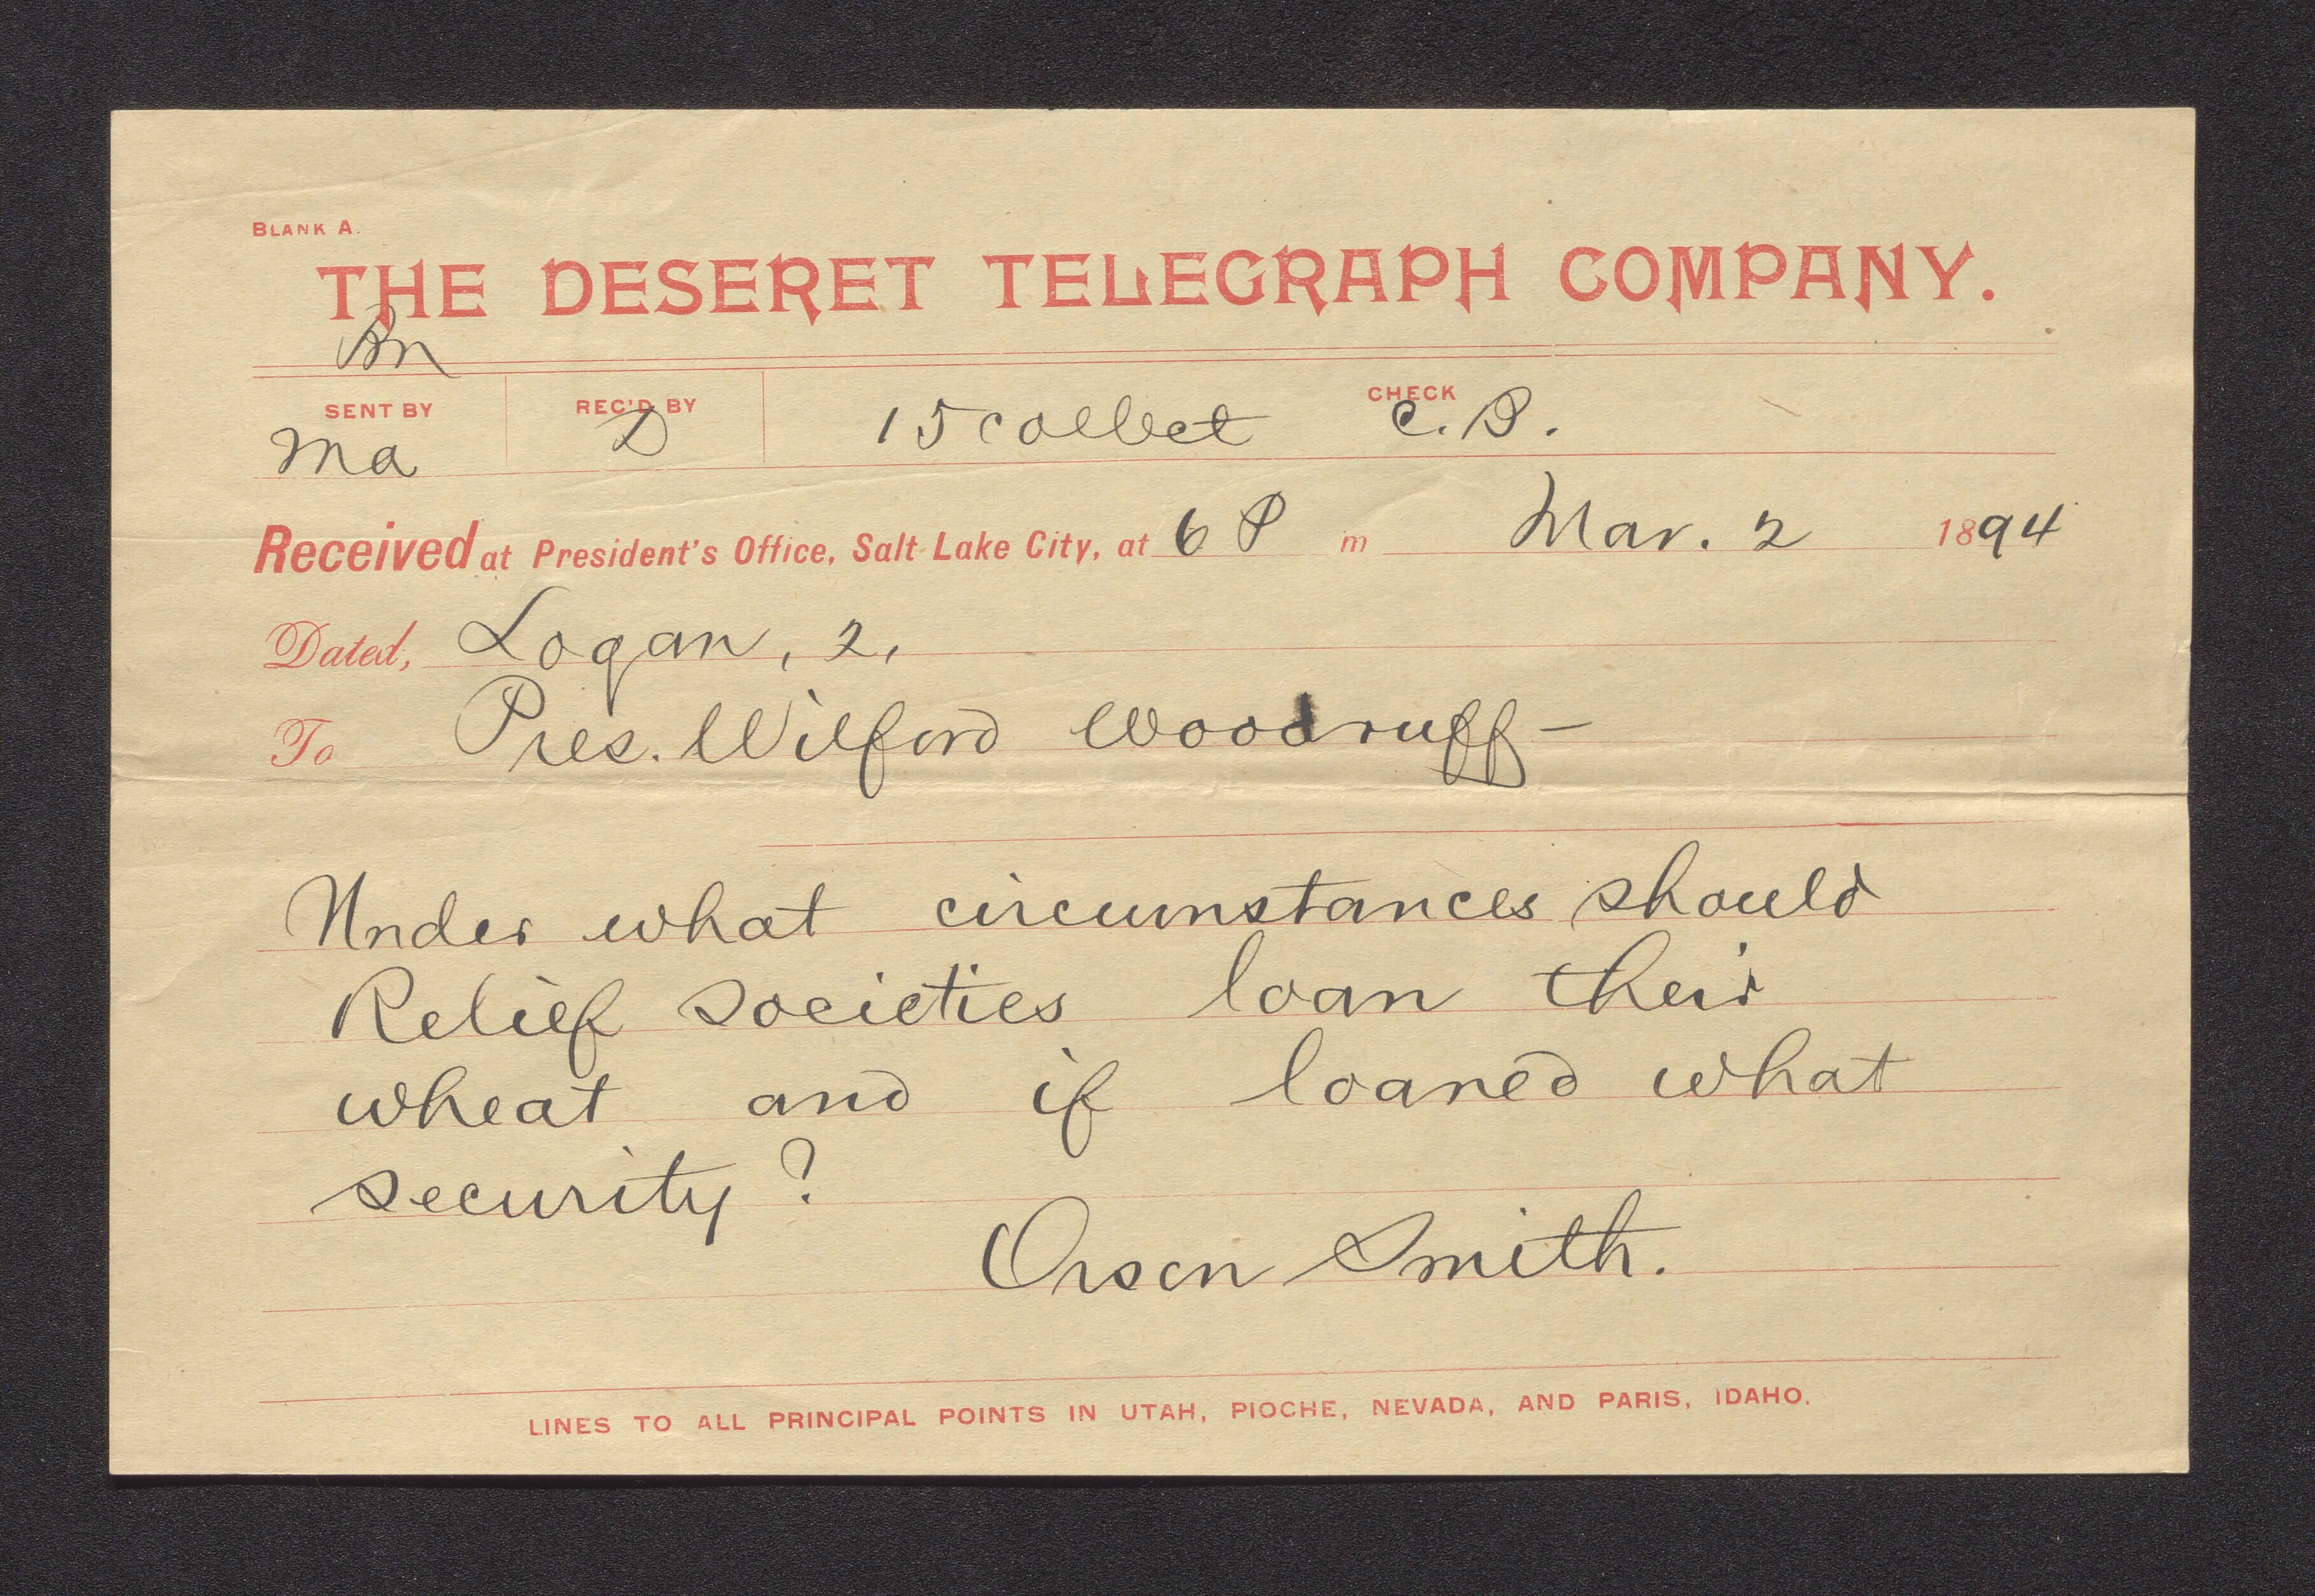 BLANK A.
THE DESERET TELEGRAPH COMPANY.
SENT BY REC'D BY CHECK
Ma D 15 collect C. B.
Received at President's Office, Salt Lake City, at 6 P m Mar. 2 1894
Dated, Logan, 2,
To Pres. Wilford Woodruff —
Under what circumstances should
Relief societies loan their
wheat and if loaned what
security?
Orson Smith.
LINES TO ALL PRINCIPAL POINTS IN UTAH, PIOCHE, NEVADA, AND PARIS, IDAHO.